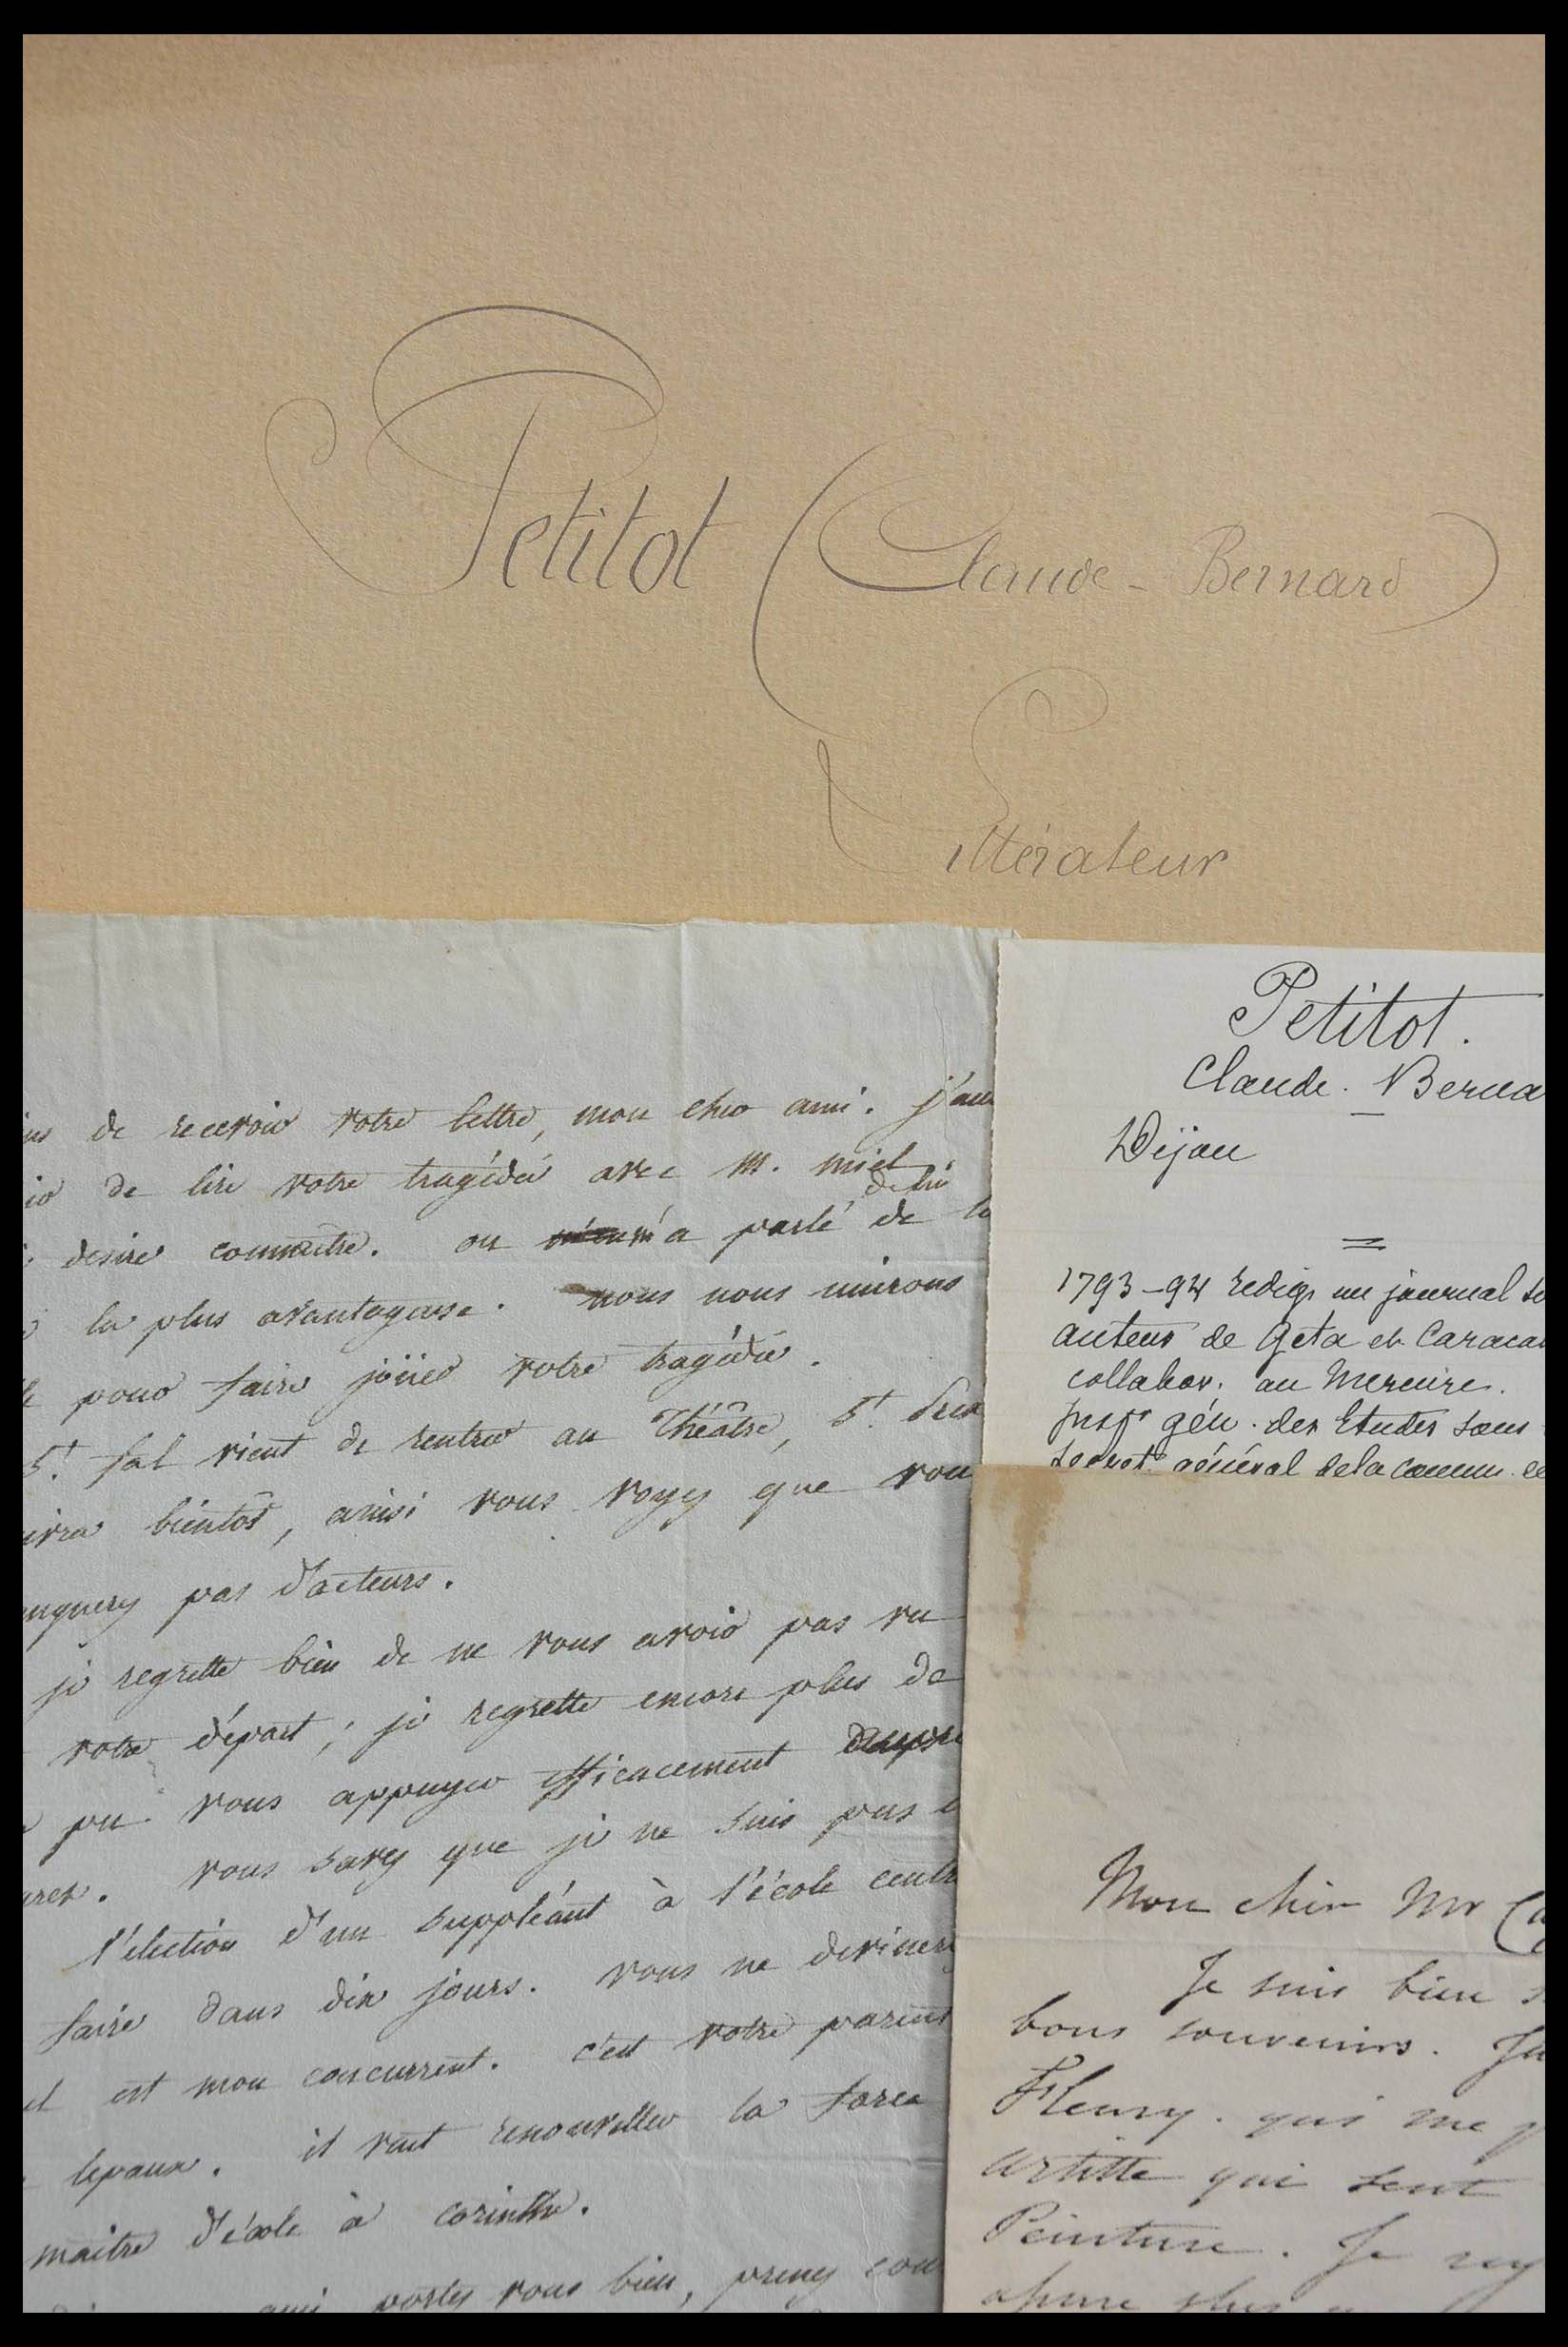 Petitot (Claude-Bernard)
Littérateur
de recevoir votre lettre, mon cher ami. j'au
de lire votre tragédie avec M. miel
de lui
desire connaitre. on m'a parlé de la
la plus avantageuse. nous nous unirons
pour faire joüer votre tragédie.
St. fal vient de rentrer au Théâtre, St. Prix
bientôt, ainsi vous voyez que vou
pas d'acteurs.
je regrette bien de ne vous avoir pas vu
votre départ; je regrette encore plus de
pu vous appuyer efficacement
vous savez que je ne suis pas
l'election d'un suppléant à l'école centr
faire dans dix jours. vous ne devinez
est mon concurrent. c'est votre parent
lepaux. il veut renouveller la farce
maitre d'école à corinthe.
ami portez vous bien, prenez
Petitot.
Claude-Berna
Dijon
=
1793-94 redige un journal
auteur de Geta et Caraca
collabor. au Mercure.
Inspr gén. des Etudes sous
Secret. général de la comm.
Mon cher Mr Ca
Je suis bien
bons souvenirs.
Fleury. qui me
artiste qui sent
Peinture. Je